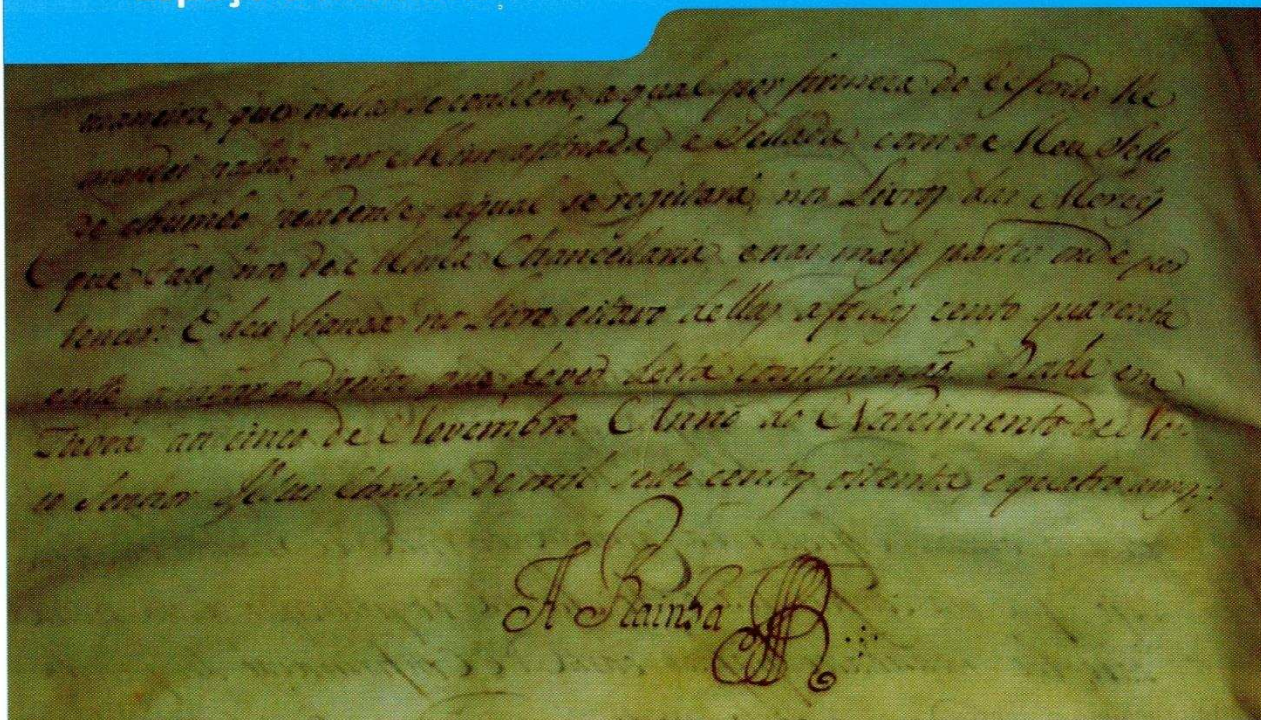 maneira, que nella se contem, a qual por firmeza do
mandei passar, por Mim assinada, e Sellada com o Meu Sello
de chumbo pendente, a qual se registará nos Livros das Mercês
que fase, nos de Minha Chancellaria, e nas mais partes onde per
tencer. E deu fiança no Livro oitavo dellas a folhas cento quarenta
direitos que dever desta confirmação. Dada em
Lisboa aos cinco de Novembro. Anno do Nascimento de Nos-
so Senhor Jesus Christo de mil sette centos oitenta e quatro annos.
A Rainha